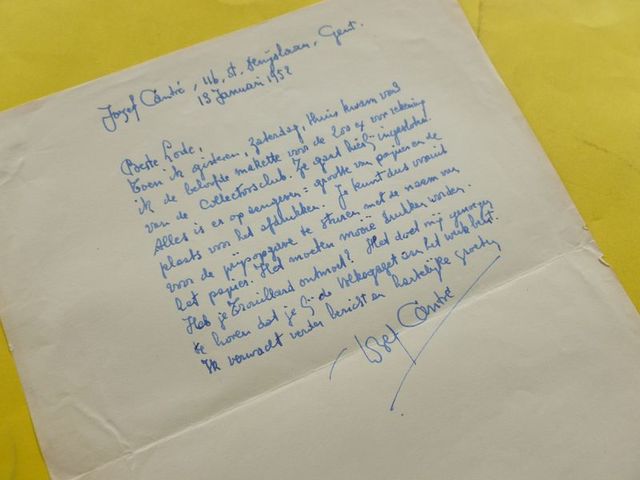 Jozef Cantré, 46, St. Denijslaan, Gent.
13 Januari 1952
Beste Lode,
Toen ik gisteren, Zaterdag, thuis kwam vond
ik de beloofde makette voor de 200 ex voor rekening
van de Collectorsclub. Ze gaat hierbij ingesloten.
Alles is er op aangegeven = grootte van papier en de
plaats voor het afdrukken. Je kunt dus vooruit
voor de prijsopgave te sturen met de naam van
het papier. Het moeten mooie drukken worden.
Heb je Trouillard ontmoet? Het doet mij genoegen
te horen dat je bij de Volksgazet aan het werk bent.
Ik verwacht verder bericht en hartelijke groeten
Jozef Cantré